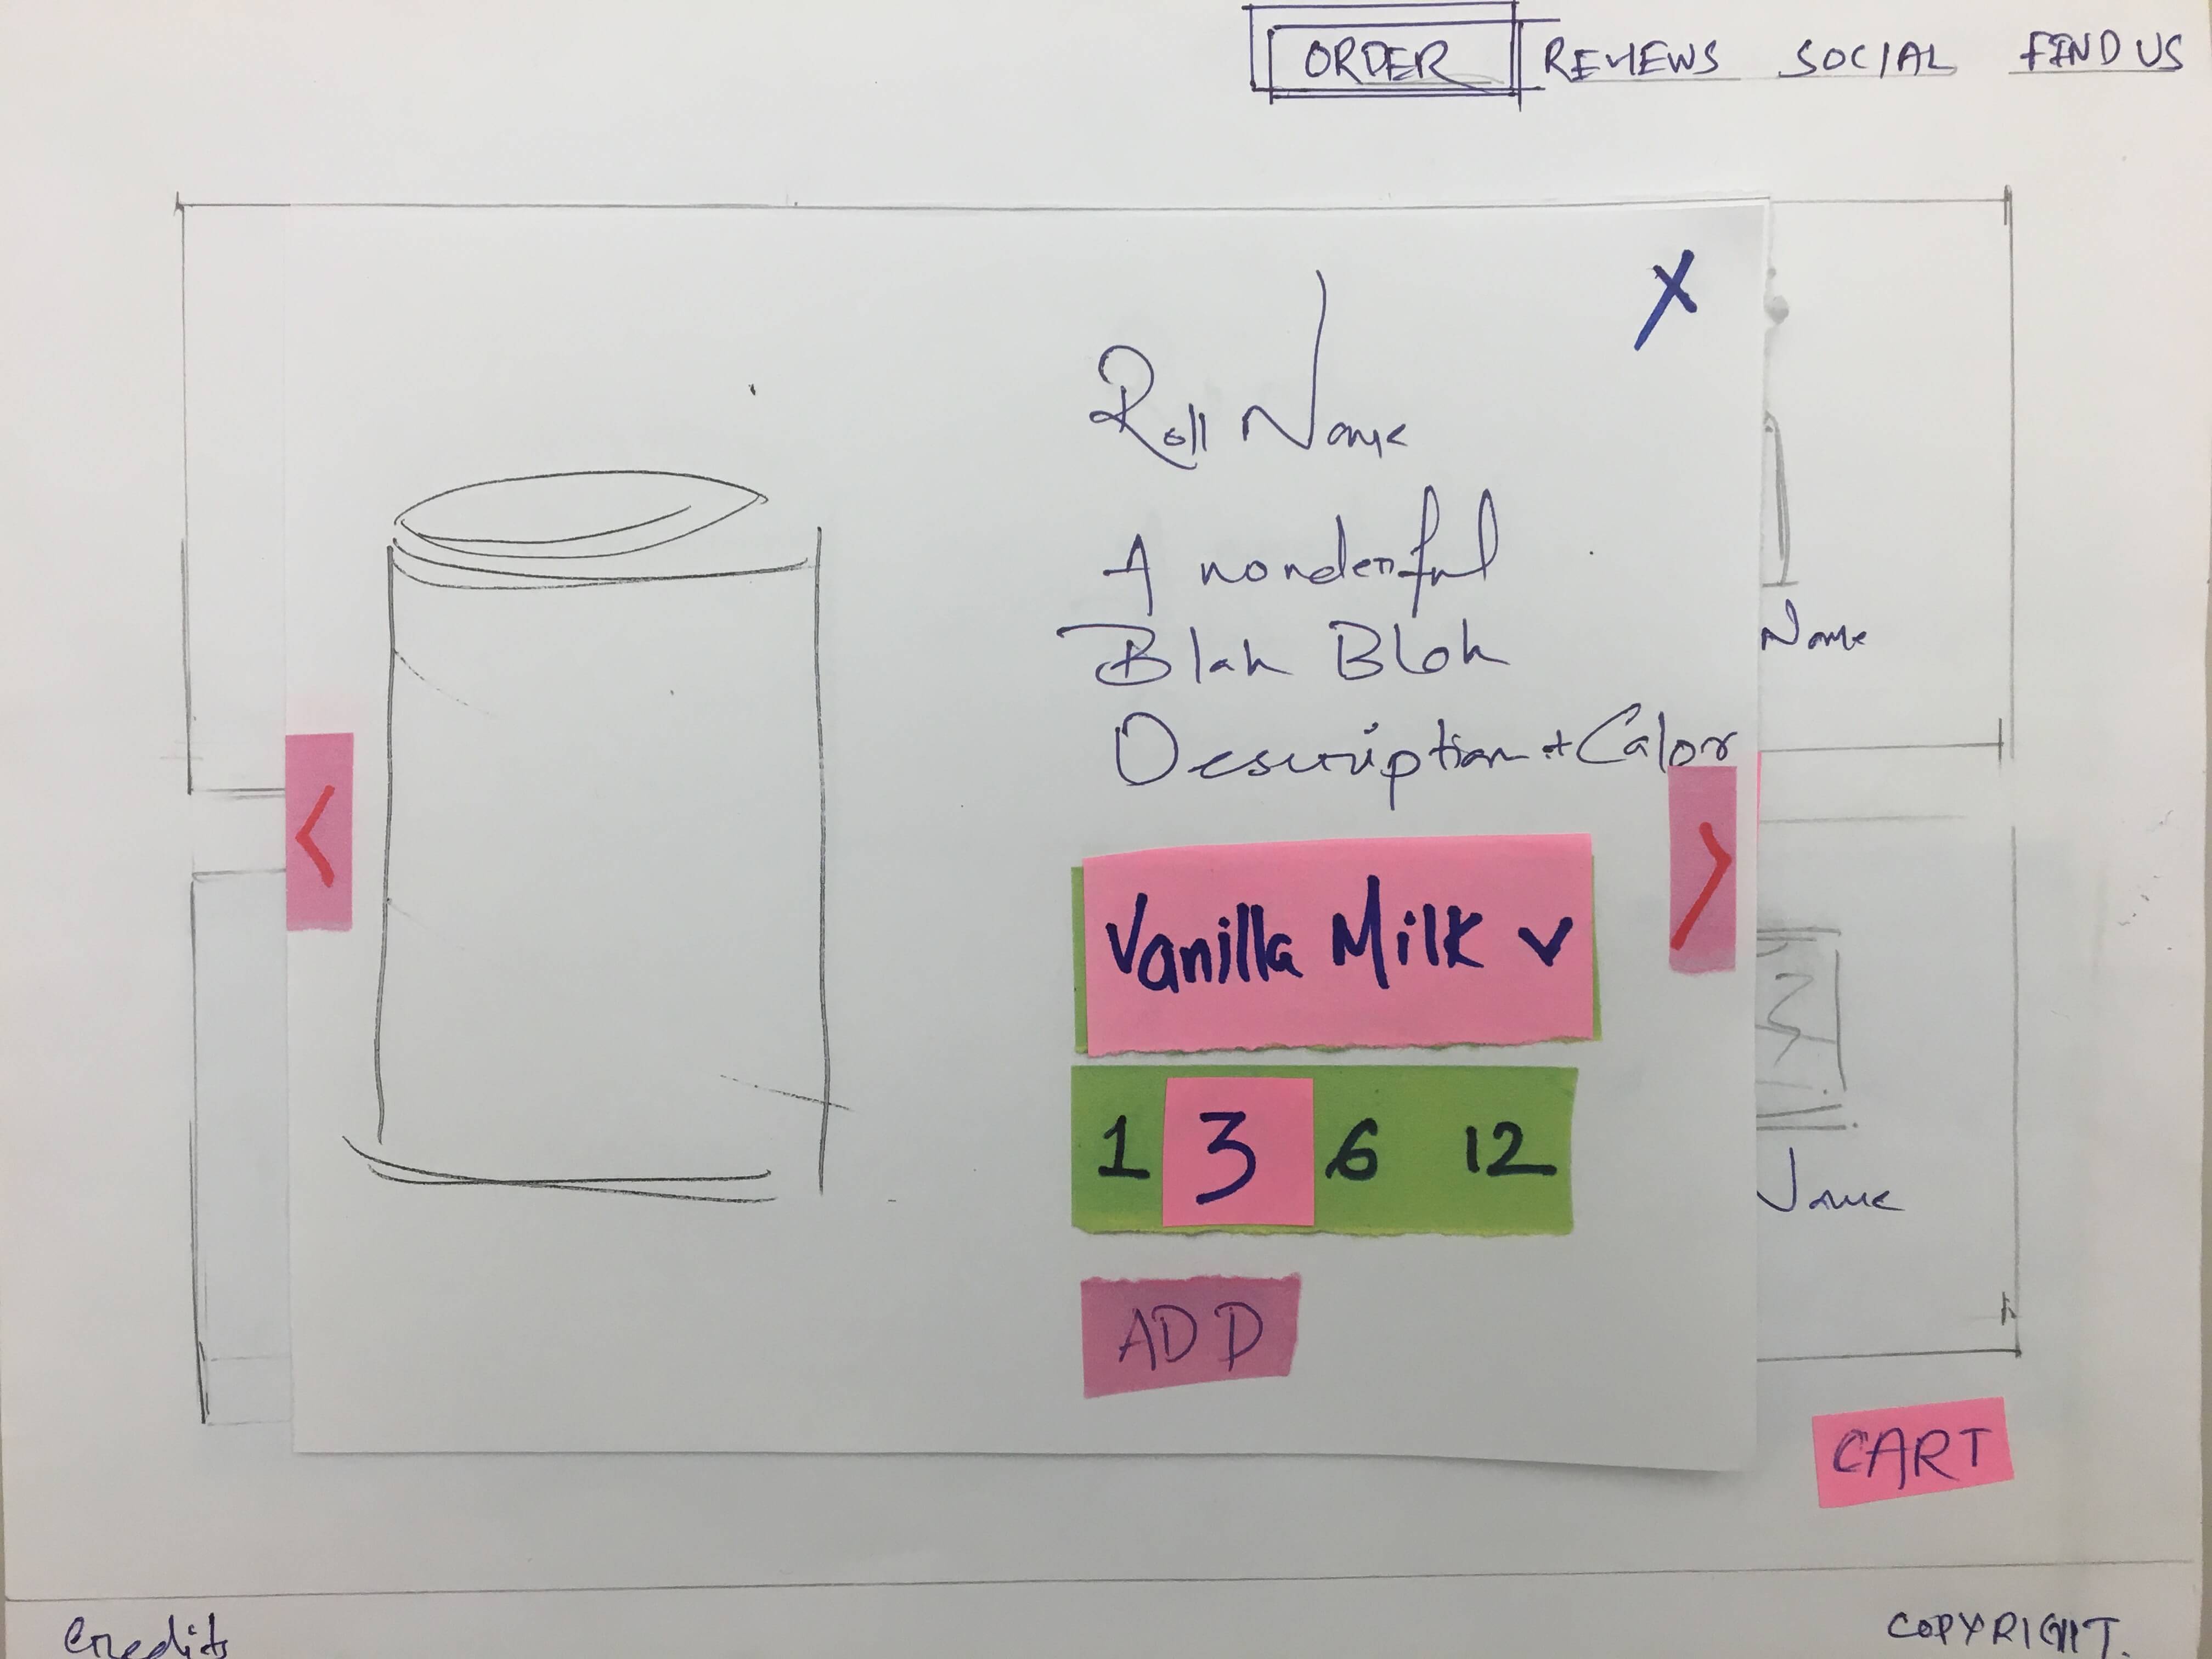 ORDER REVIEWS SOCIAL FIND US
X
Roll Name
A wonderful
Blah Blah
Description + Calor
<
>
Vanilla Milk v
1 3 6 12
ADD
Name
Name
CART
Credits
COPYRIGHT.